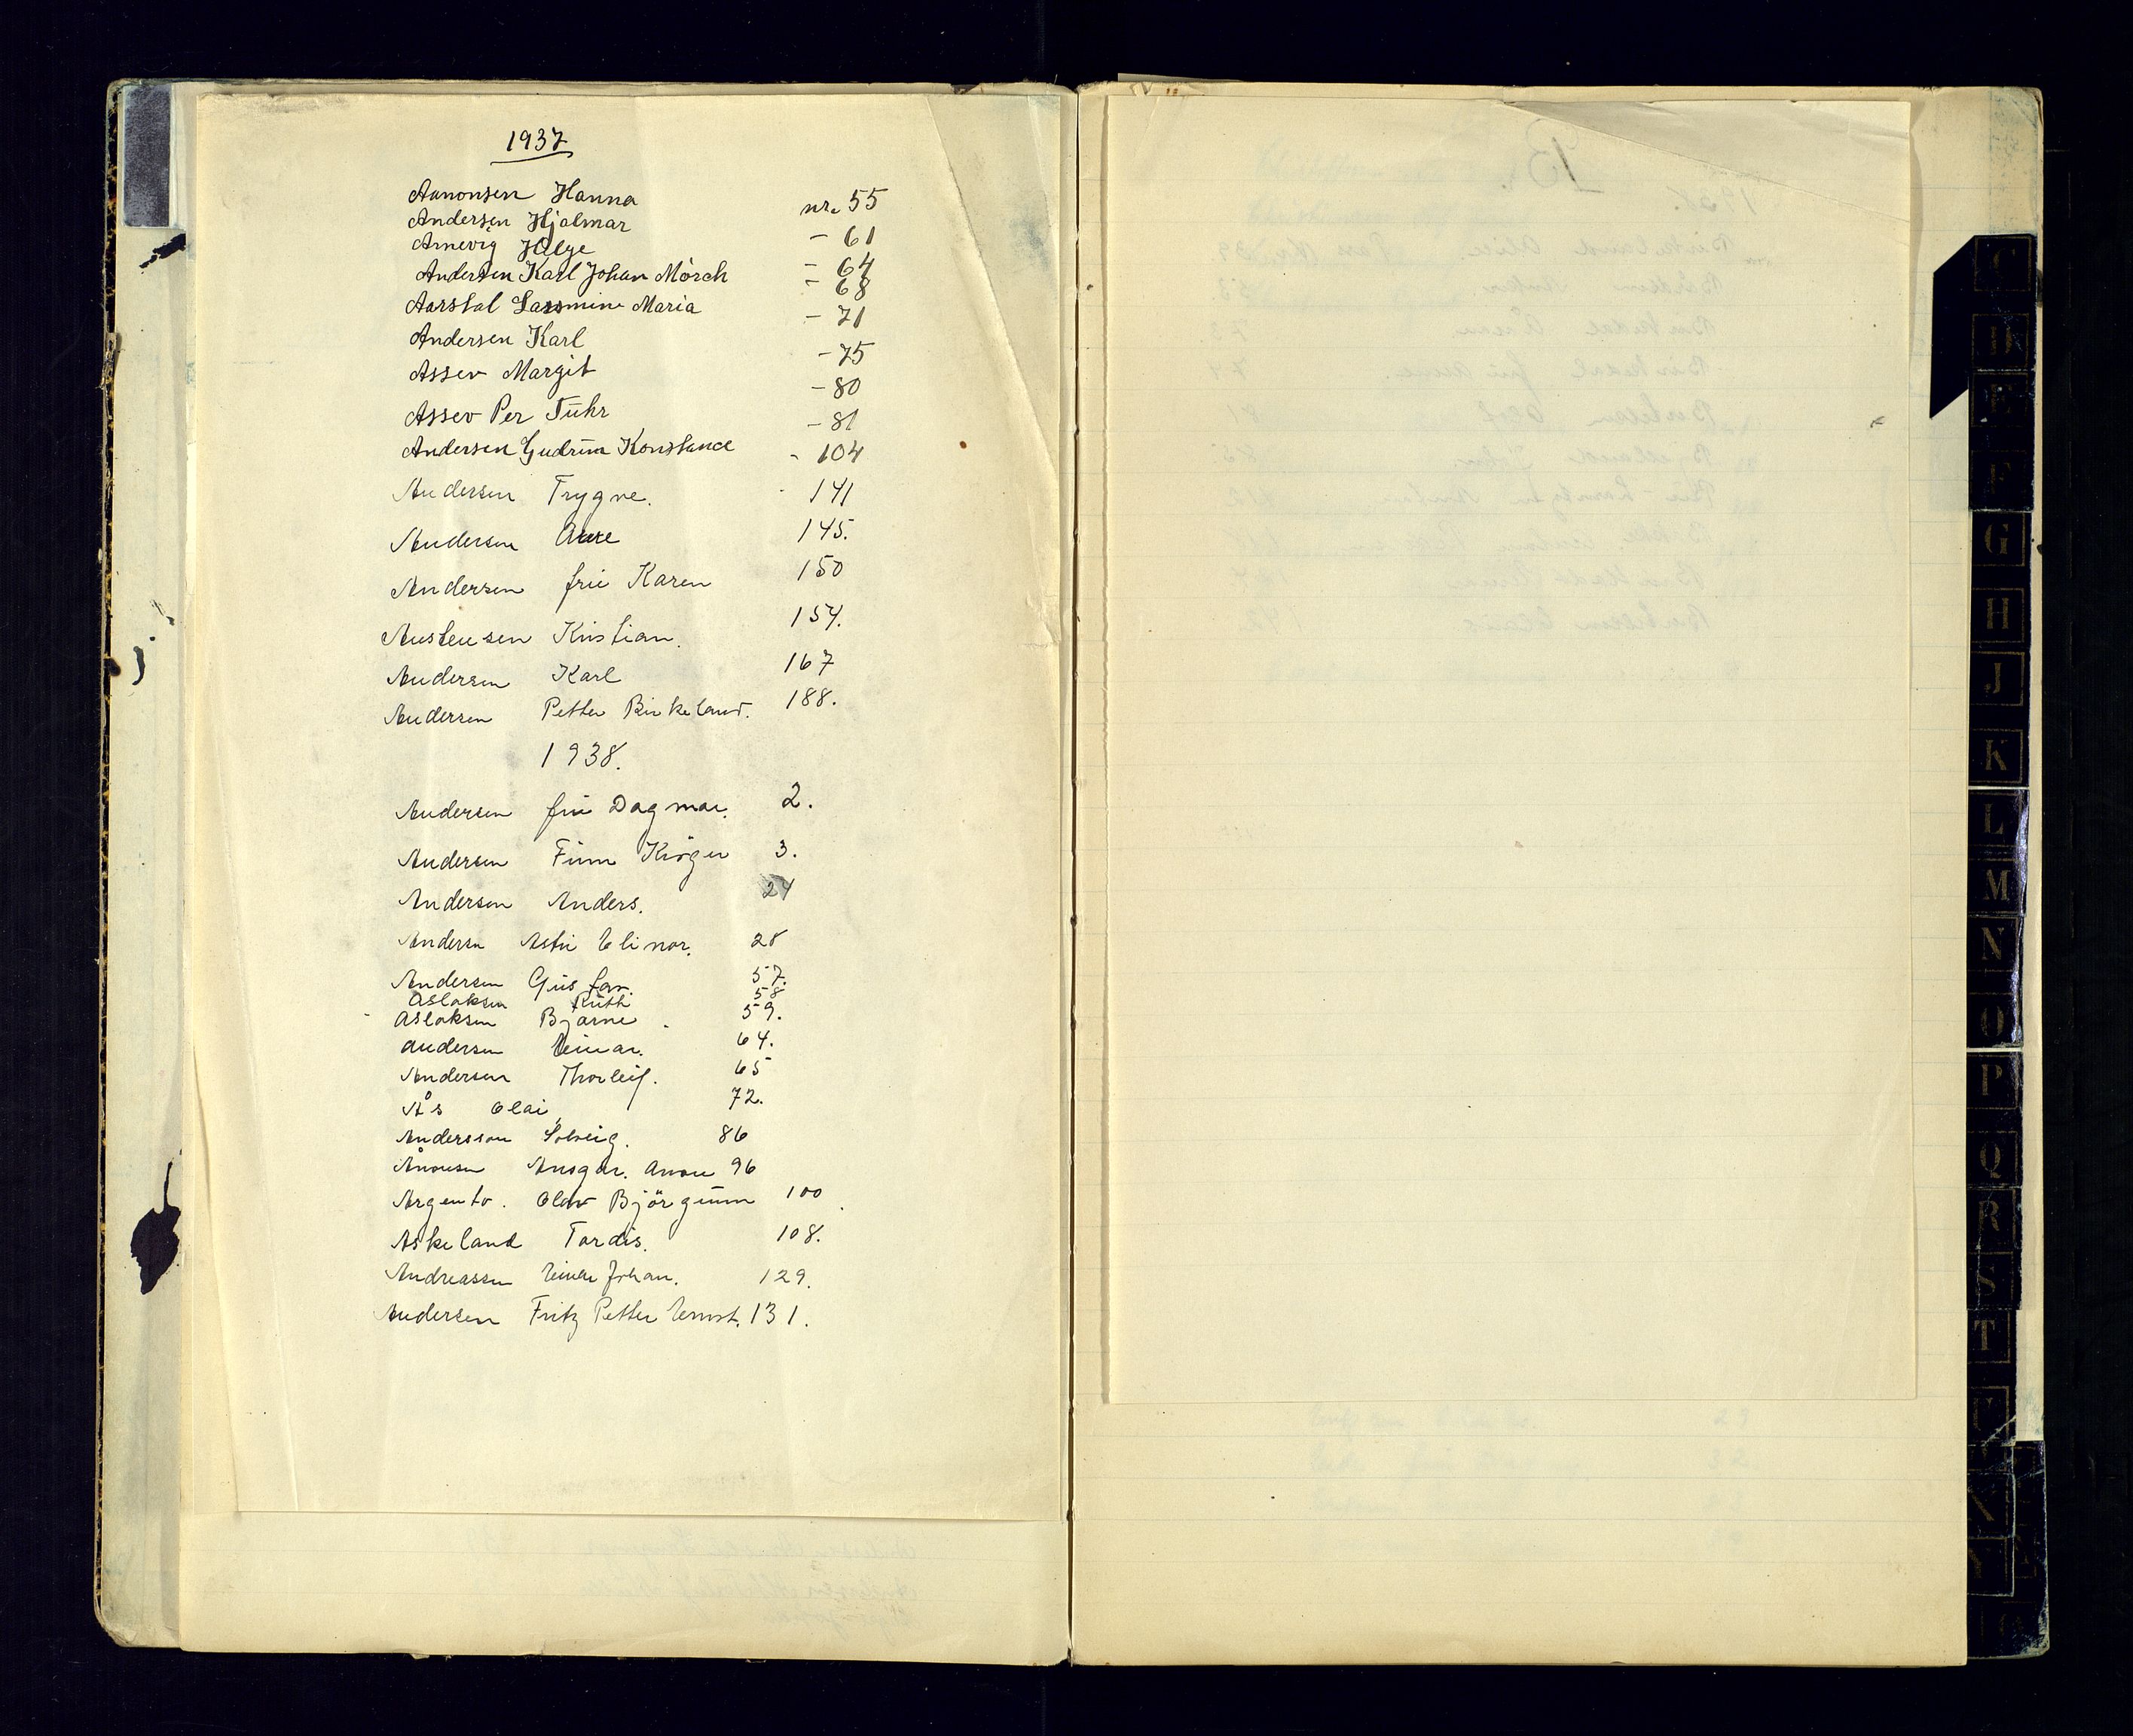 1937
Aanonsen Hanna nr. 55
Andersen Hjalmar - 61
Arnevig Helge - 64
Andersen Karl Johan Mörch - 68
Aarstal Lassmine Maria - 71
Andersen Karl - 75
Assev Margit - 80
Assev Per Tuhr - 81
Andersen Gudrun Konstance - 104
Andersen Trygve. 141
Andersen Aase 145.
Andersen fru Karen 150
Austensen Kristian. 154.
Andersen Karl 167
Andersen Petter Birkeland. 188.
1938.
Andersen fru Dagmar. 2.
Andersen Finn Kröger 3.
Andersen Anders. 24
Andersen Astri Elinor. 28
Andersen Gustav. 57.
Aslaksen Ruth 58
Aslaksen Bjarne. 59.
Andersen Einar. 64.
Andersen Thorleif. 65
Ås Olai 72.
Andersson Solveig. 86
Ånonsen Ansgar. Anon 96
Argento. Olav Björgum 100
Askeland Tordis. 108.
Andreassen Einar Johan. 129.
Andersen Fritz Petter Ernst. 131.
G
H
J
K
L
M
N
O
P
Q
R
S
T